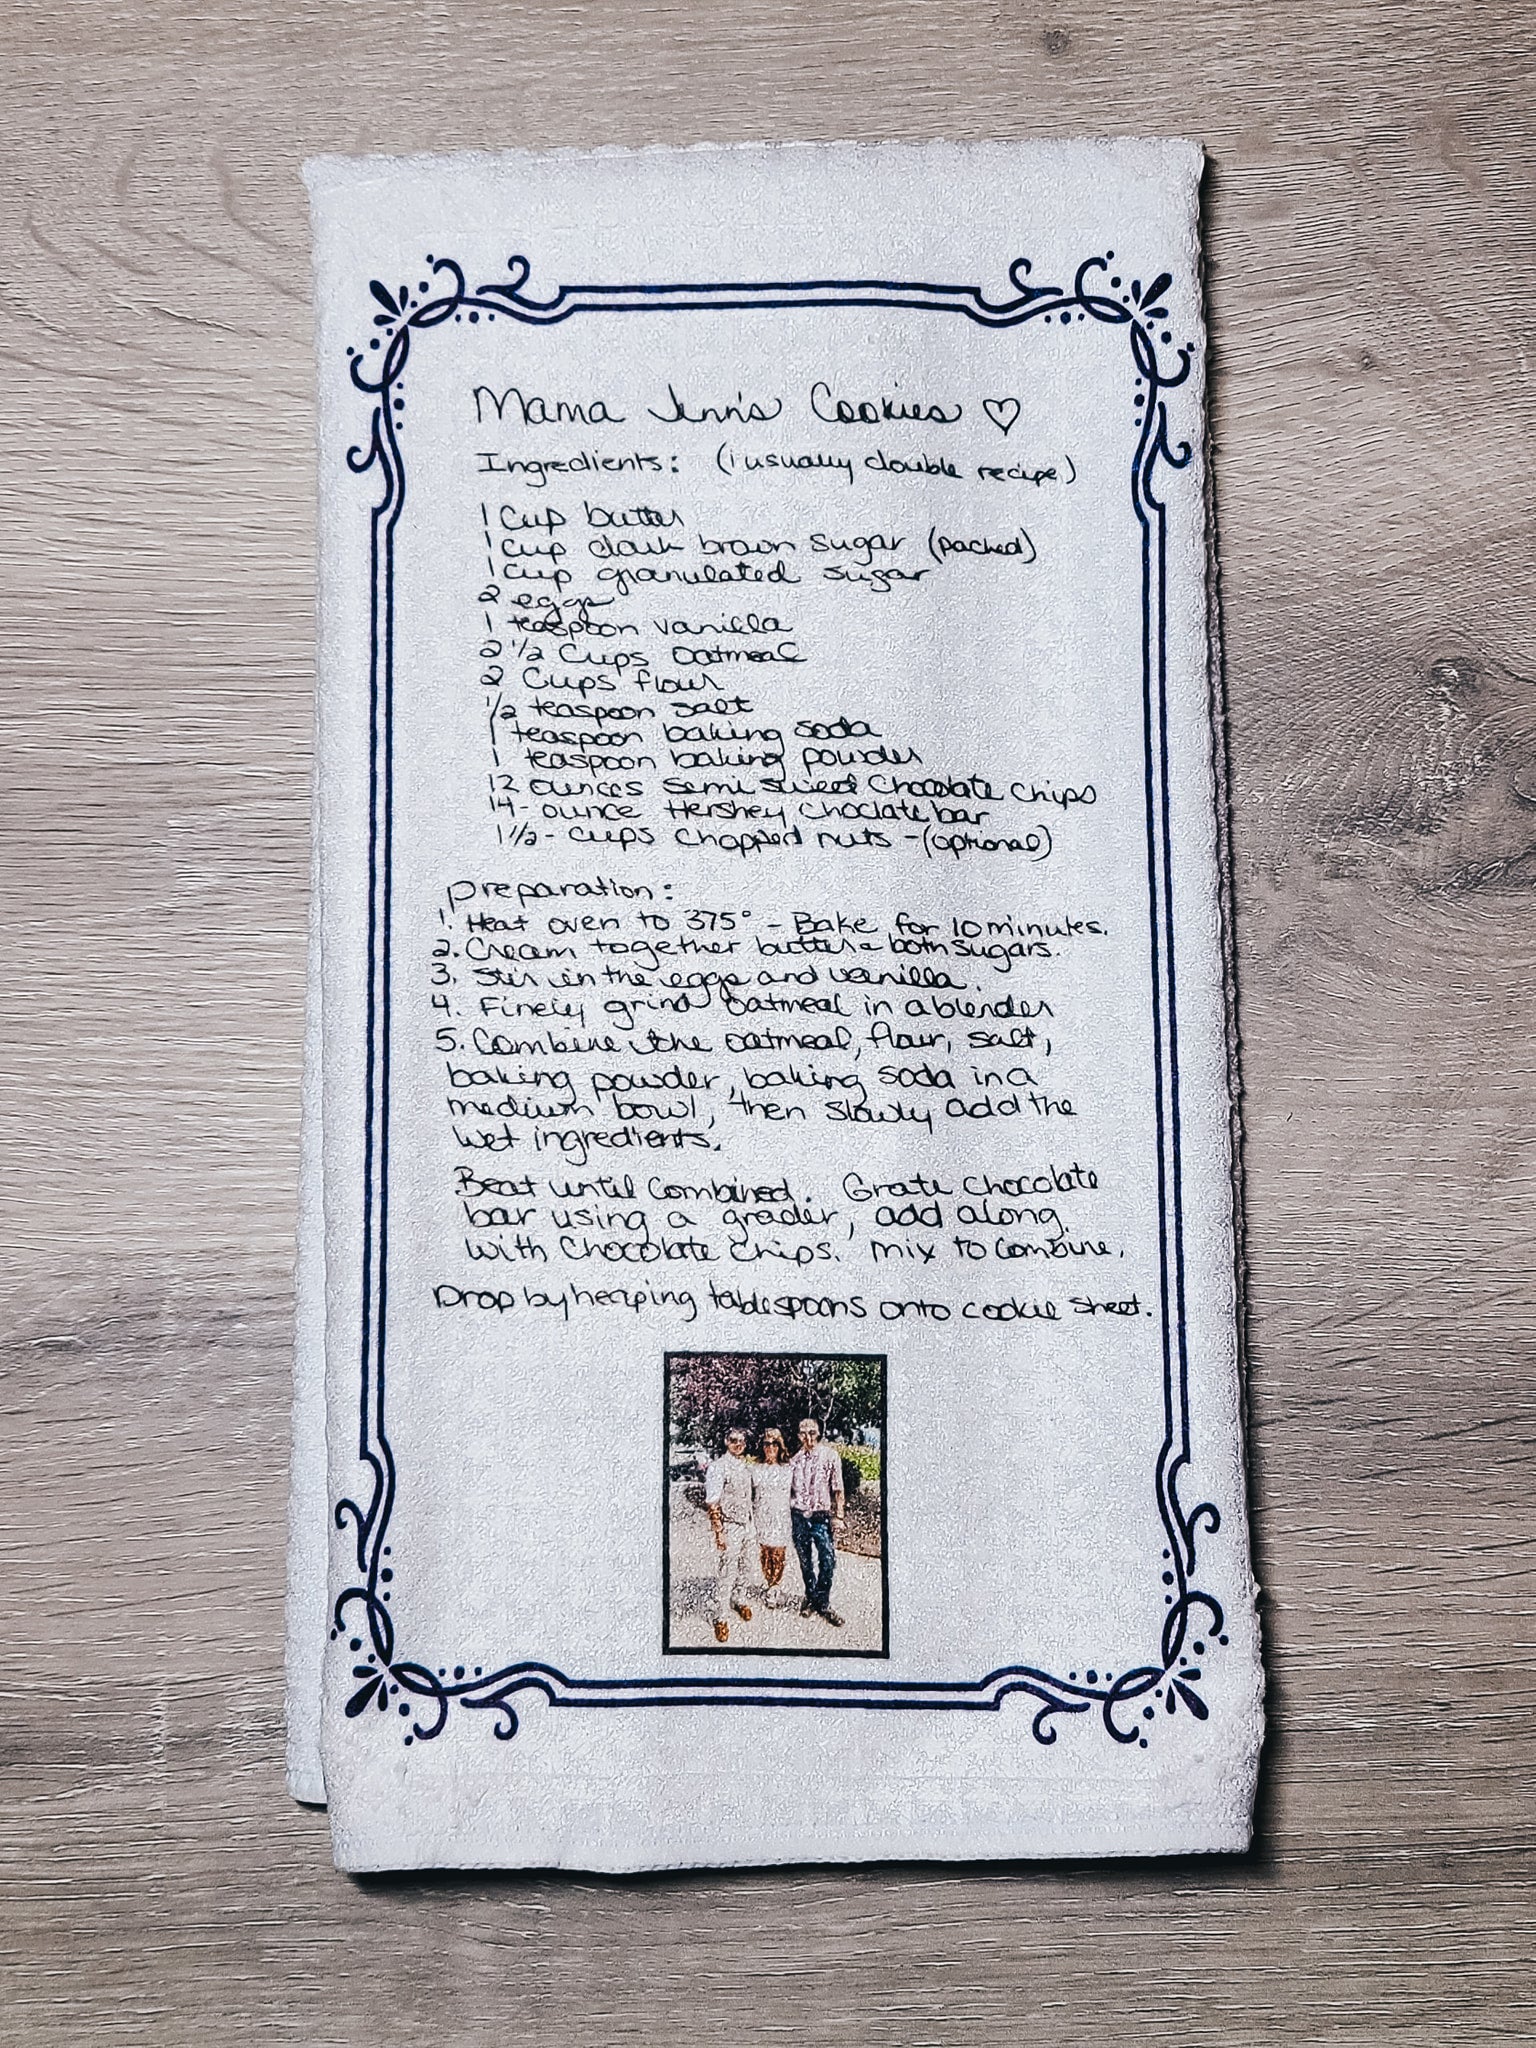 Mama Jenn's Cookies ♡
Ingredients: (i usually double recipe)
1 cup butter
1 cup dark brown sugar (packed)
1 cup granulated sugar
2 eggs
1 teaspoon vanilla
2 1/2 cups oatmeal
2 cups flour
1/2 teaspoon salt
1 teaspoon baking soda
1 teaspoon baking powder
12 ounces semi sweet chocolate chips
14- ounce Hershey choclate bar
1 1/2- cups chopped nuts -(optional)
preparation:
1. Heat oven to 375° - Bake for 10 minutes.
2. Cream together butter & both sugars.
3. Stir in the eggs and vanilla.
4. Finely grind oatmeal in a blender
5. Combine the oatmeal, flour, salt,
baking powder, baking soda in a
medium bowl, then slowly add the
wet ingredients.
Beat until combined. Grate chocolate
bar using a grader, add along
with chocolate chips. mix to combine.
Drop by heaping tablespoons onto cookie sheet.